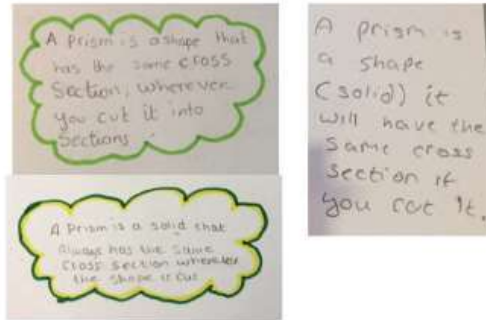 A Prism is a shape that
has the same cross
section, wherever
you cut it into
sections
A Prism is a solid that
always has the same
cross section wherever
the shape is cut
A prism is
a shape
(solid) it
will have the
same cross
section if
you cut it.